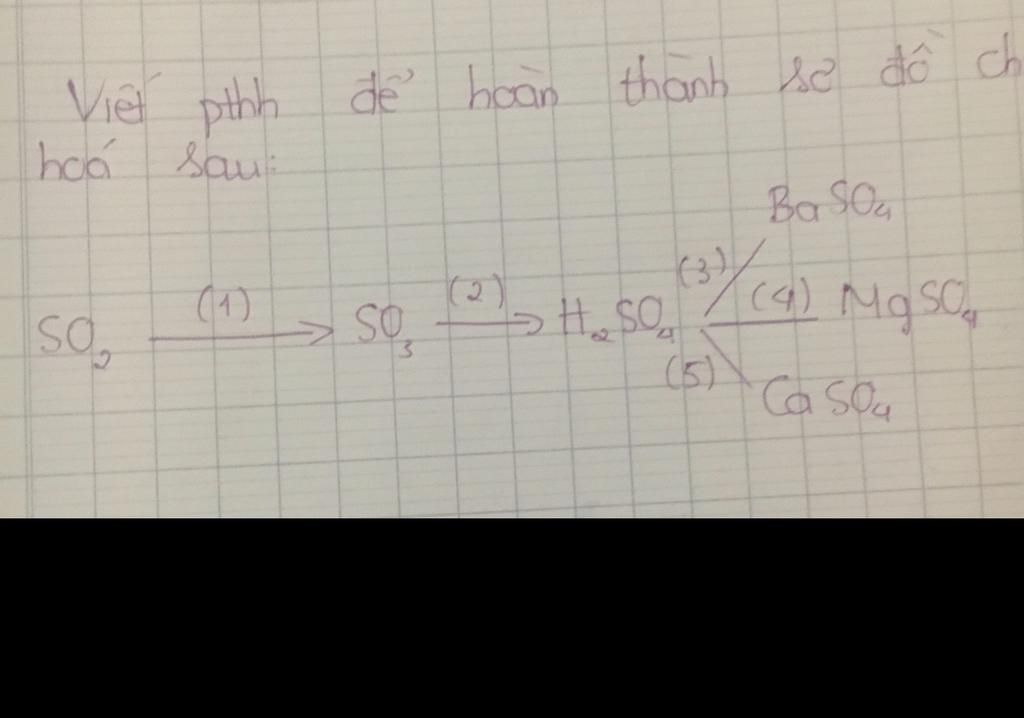 Viết pthh để hoàn thành sơ đồ ch
hoá sau:
BaSO₄
(3)
SO₂ (1) → SO₃ (2) → H₂SO₄ (4) MgSO₄
(5)
CaSO₄